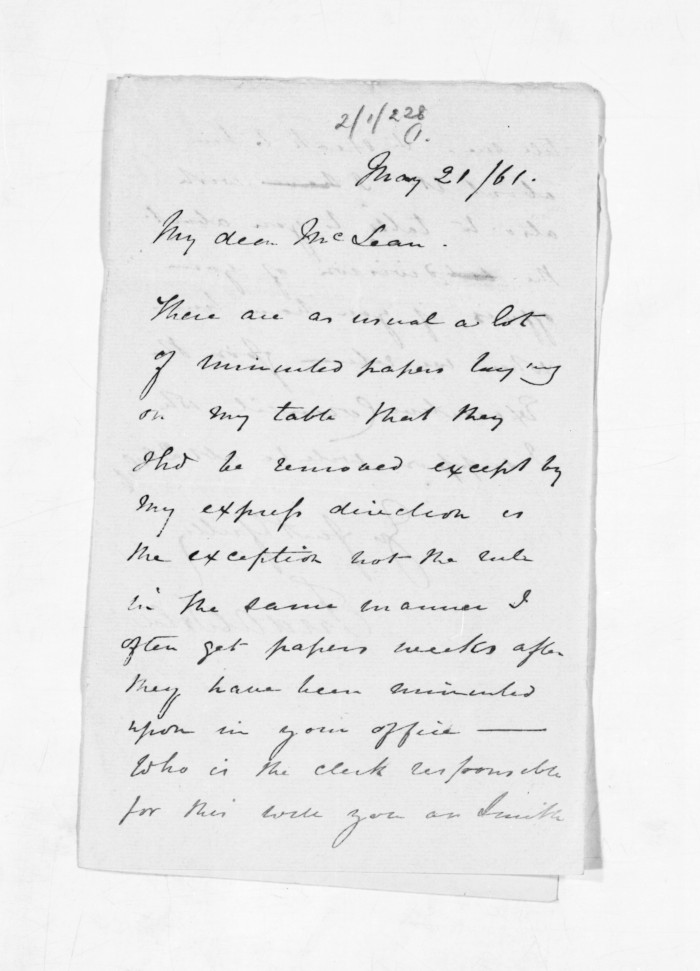 2/1/228
1.
May 21/61.
My dear McLean.
There are as usual a lot
of minuted papers laying
on my table that they
shd be removed except by
my express direction is
the exception not the rule
in the same manner I
often get papers weeks after
they have been minuted
upon in your office —
Who is the clerk responsible
for this will you or Smith